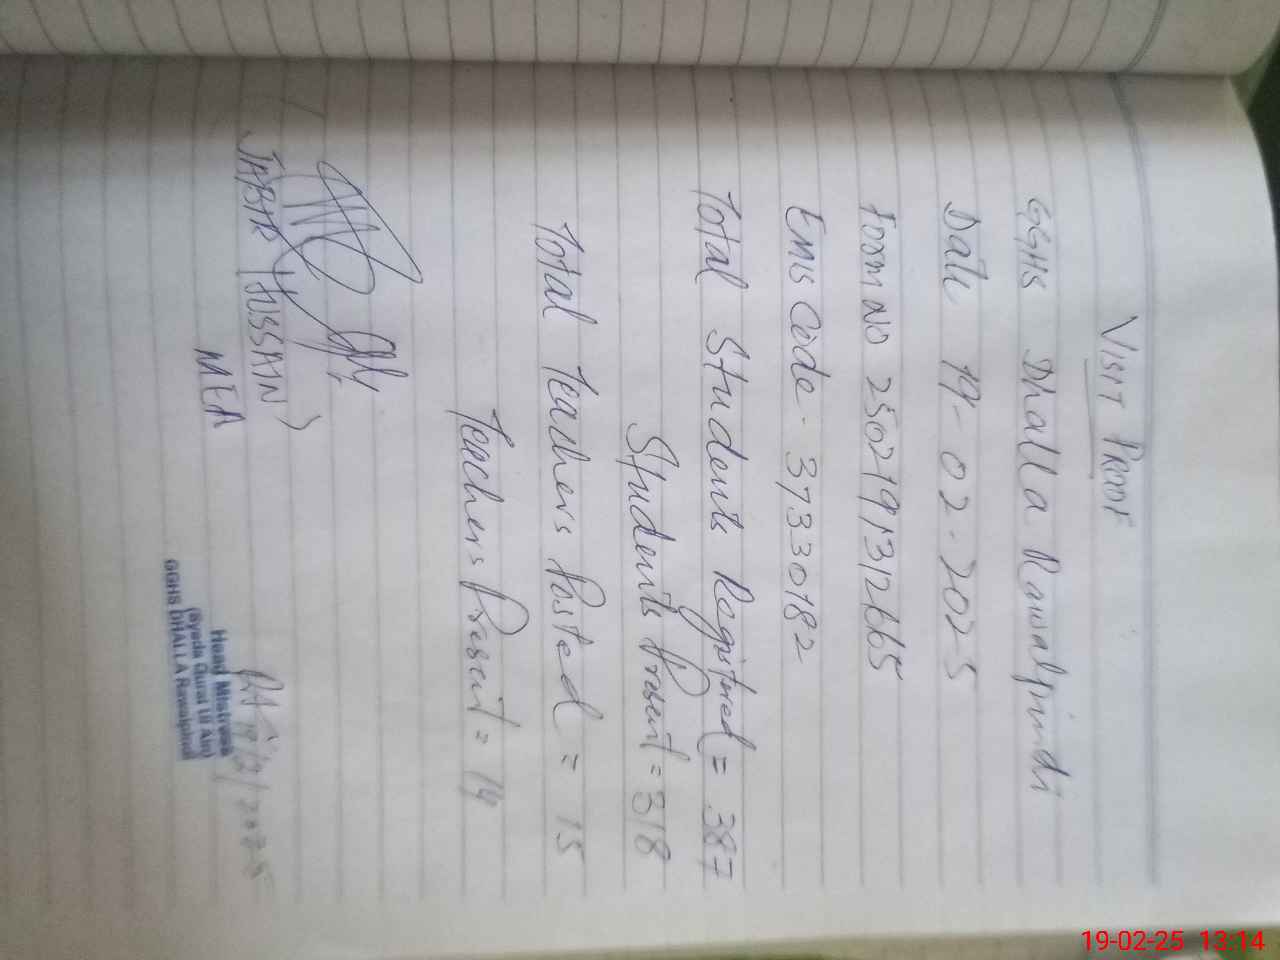 VISIT PROOF
GGHS Dhalla Rawalpindi
Date 19-02-2025
Form NO 2502191312665
EMIS Code - 37330182
Total Students Registred = 387
Students Present = 318
Total Teachers Posted = 15
Teachers Present = 14
JABIR HUSSAIN)
MEA
19/2/2025
Head Mistress
(Syeda Qurat Ul Ain)
GGHS DHALLA Rawalpindi
19-02-25 13:14